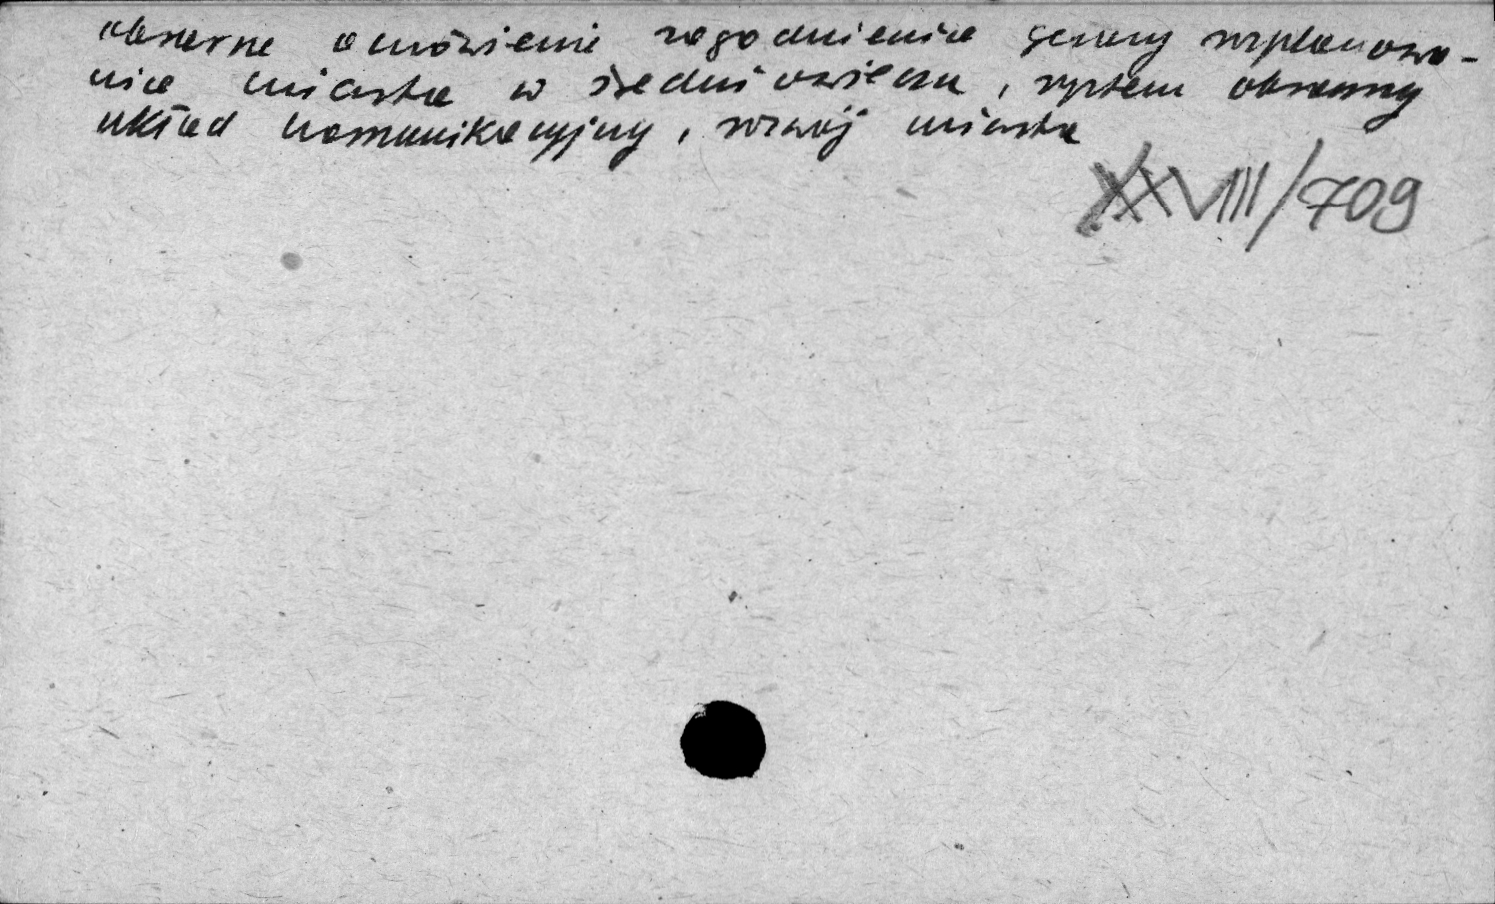 obszerne omówienie zagadnienia genezy rozplanowa-
nia miasta w średniowieczu, system obronny
układ komunikacyjny, rozwój miasta
XXVIII/709